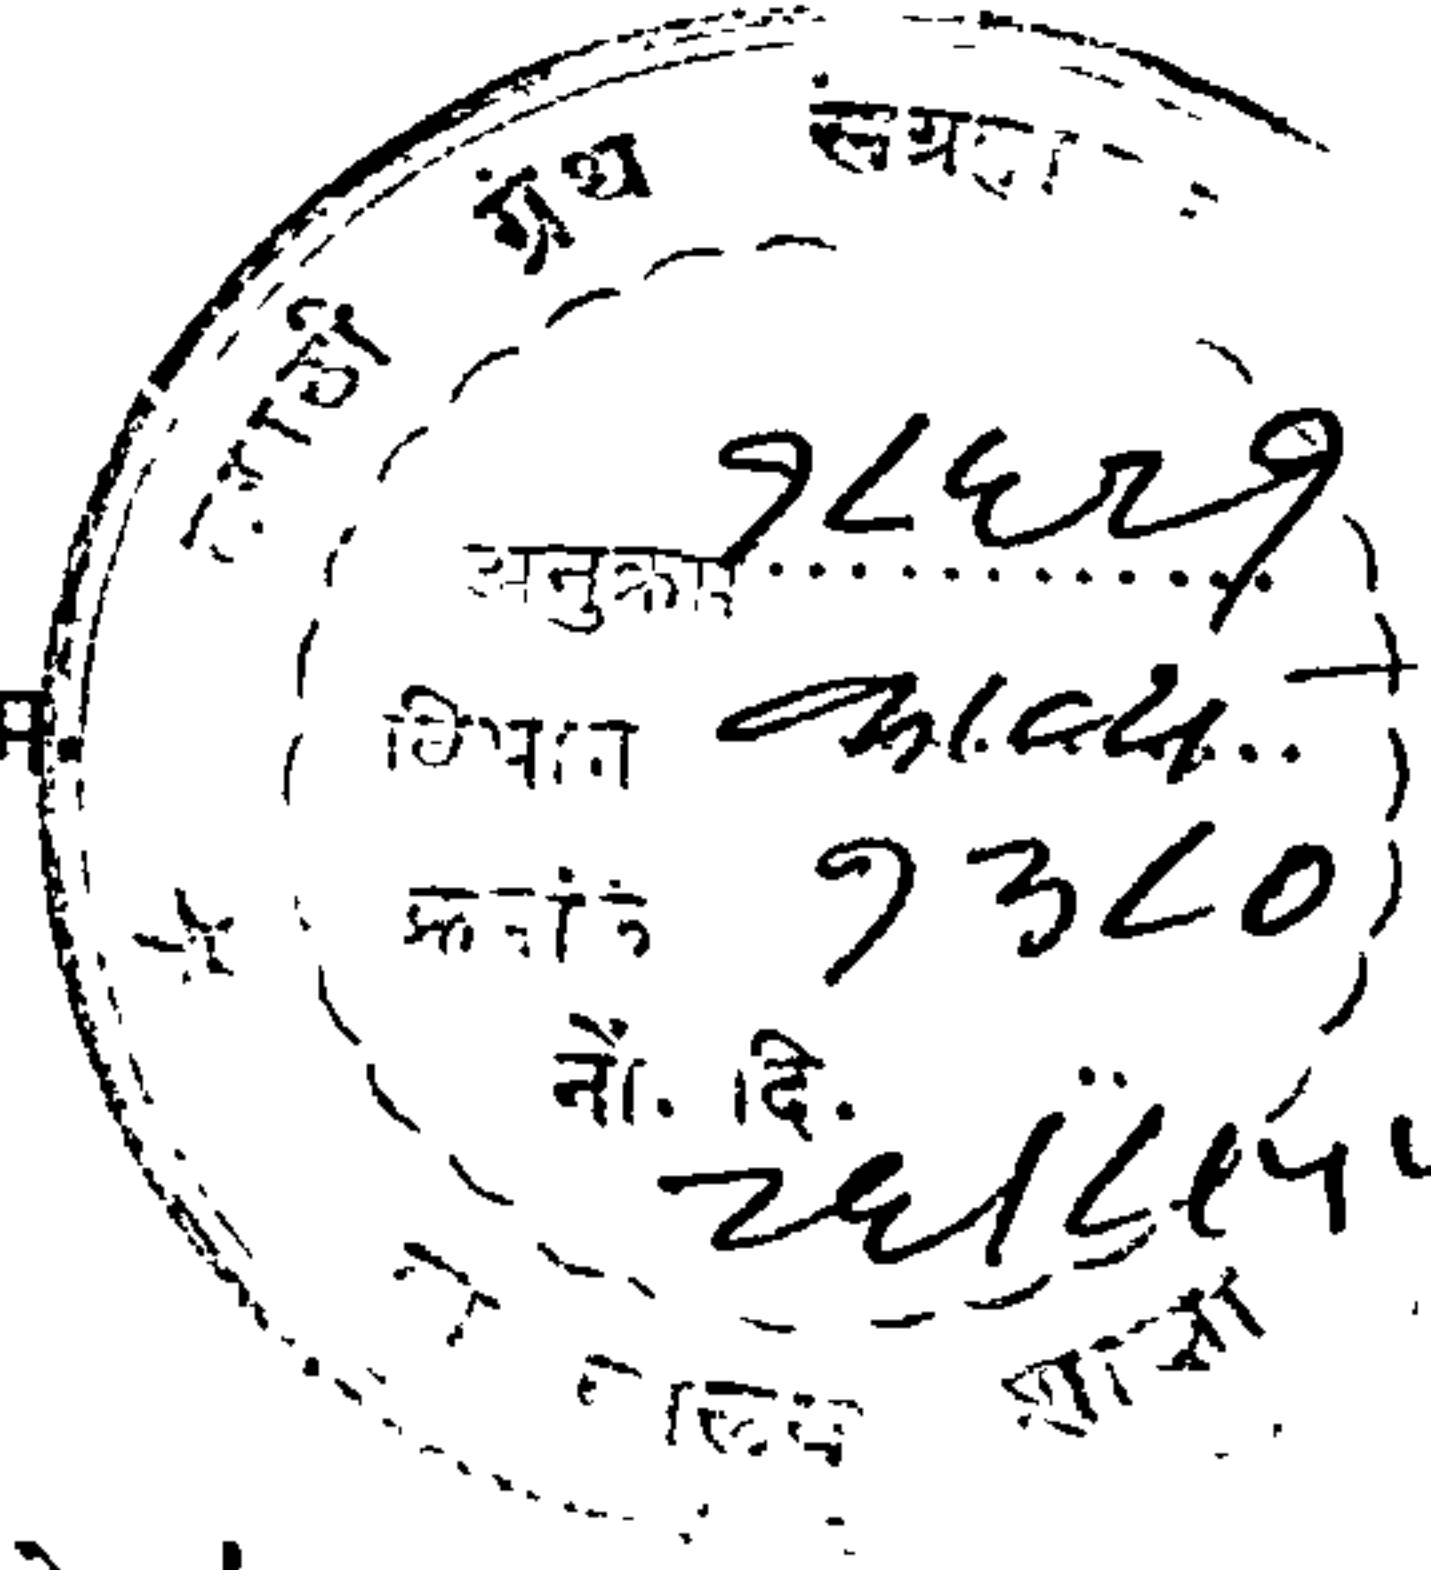 मराठी ग्रंथ संग्रहा
अनुक्रम १८६२१
विभाग काव्य
क्रमांक १३८०
नों. दि.
२६।८।५५
शाखा